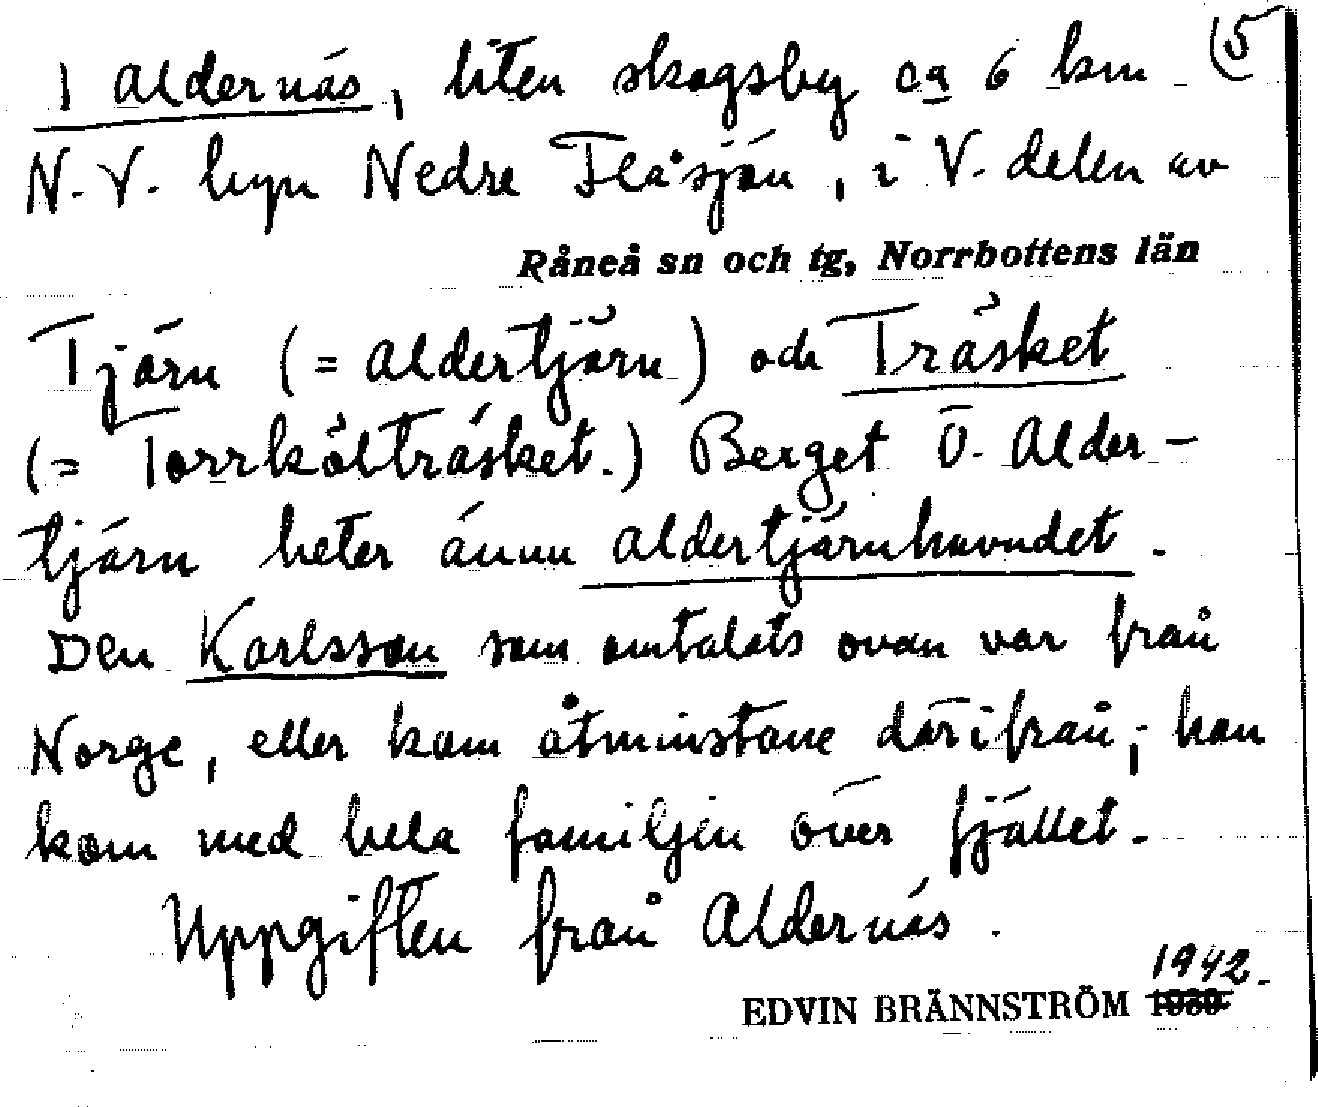 (5
I Aldernäs, liten skogsby ca 6 km
N.V. byn Nedre Flåsjön, i V. delen av
Råneå sn och tg, Norrbottens län
Tjärn (= Aldertjärn) och Träsket
(= Torrkölträsket.) Berget Ö. Alder-
tjärn heter ännu Aldertjärnhuvudet.
Den Karlsson som omtalats ovan var från
Norge, eller kom åtminstone därifrån; han
kom med hela familjen över fjället.
Uppgiften från Aldernäs.
1942.
EDVIN BRÄNNSTRÖM 1930.